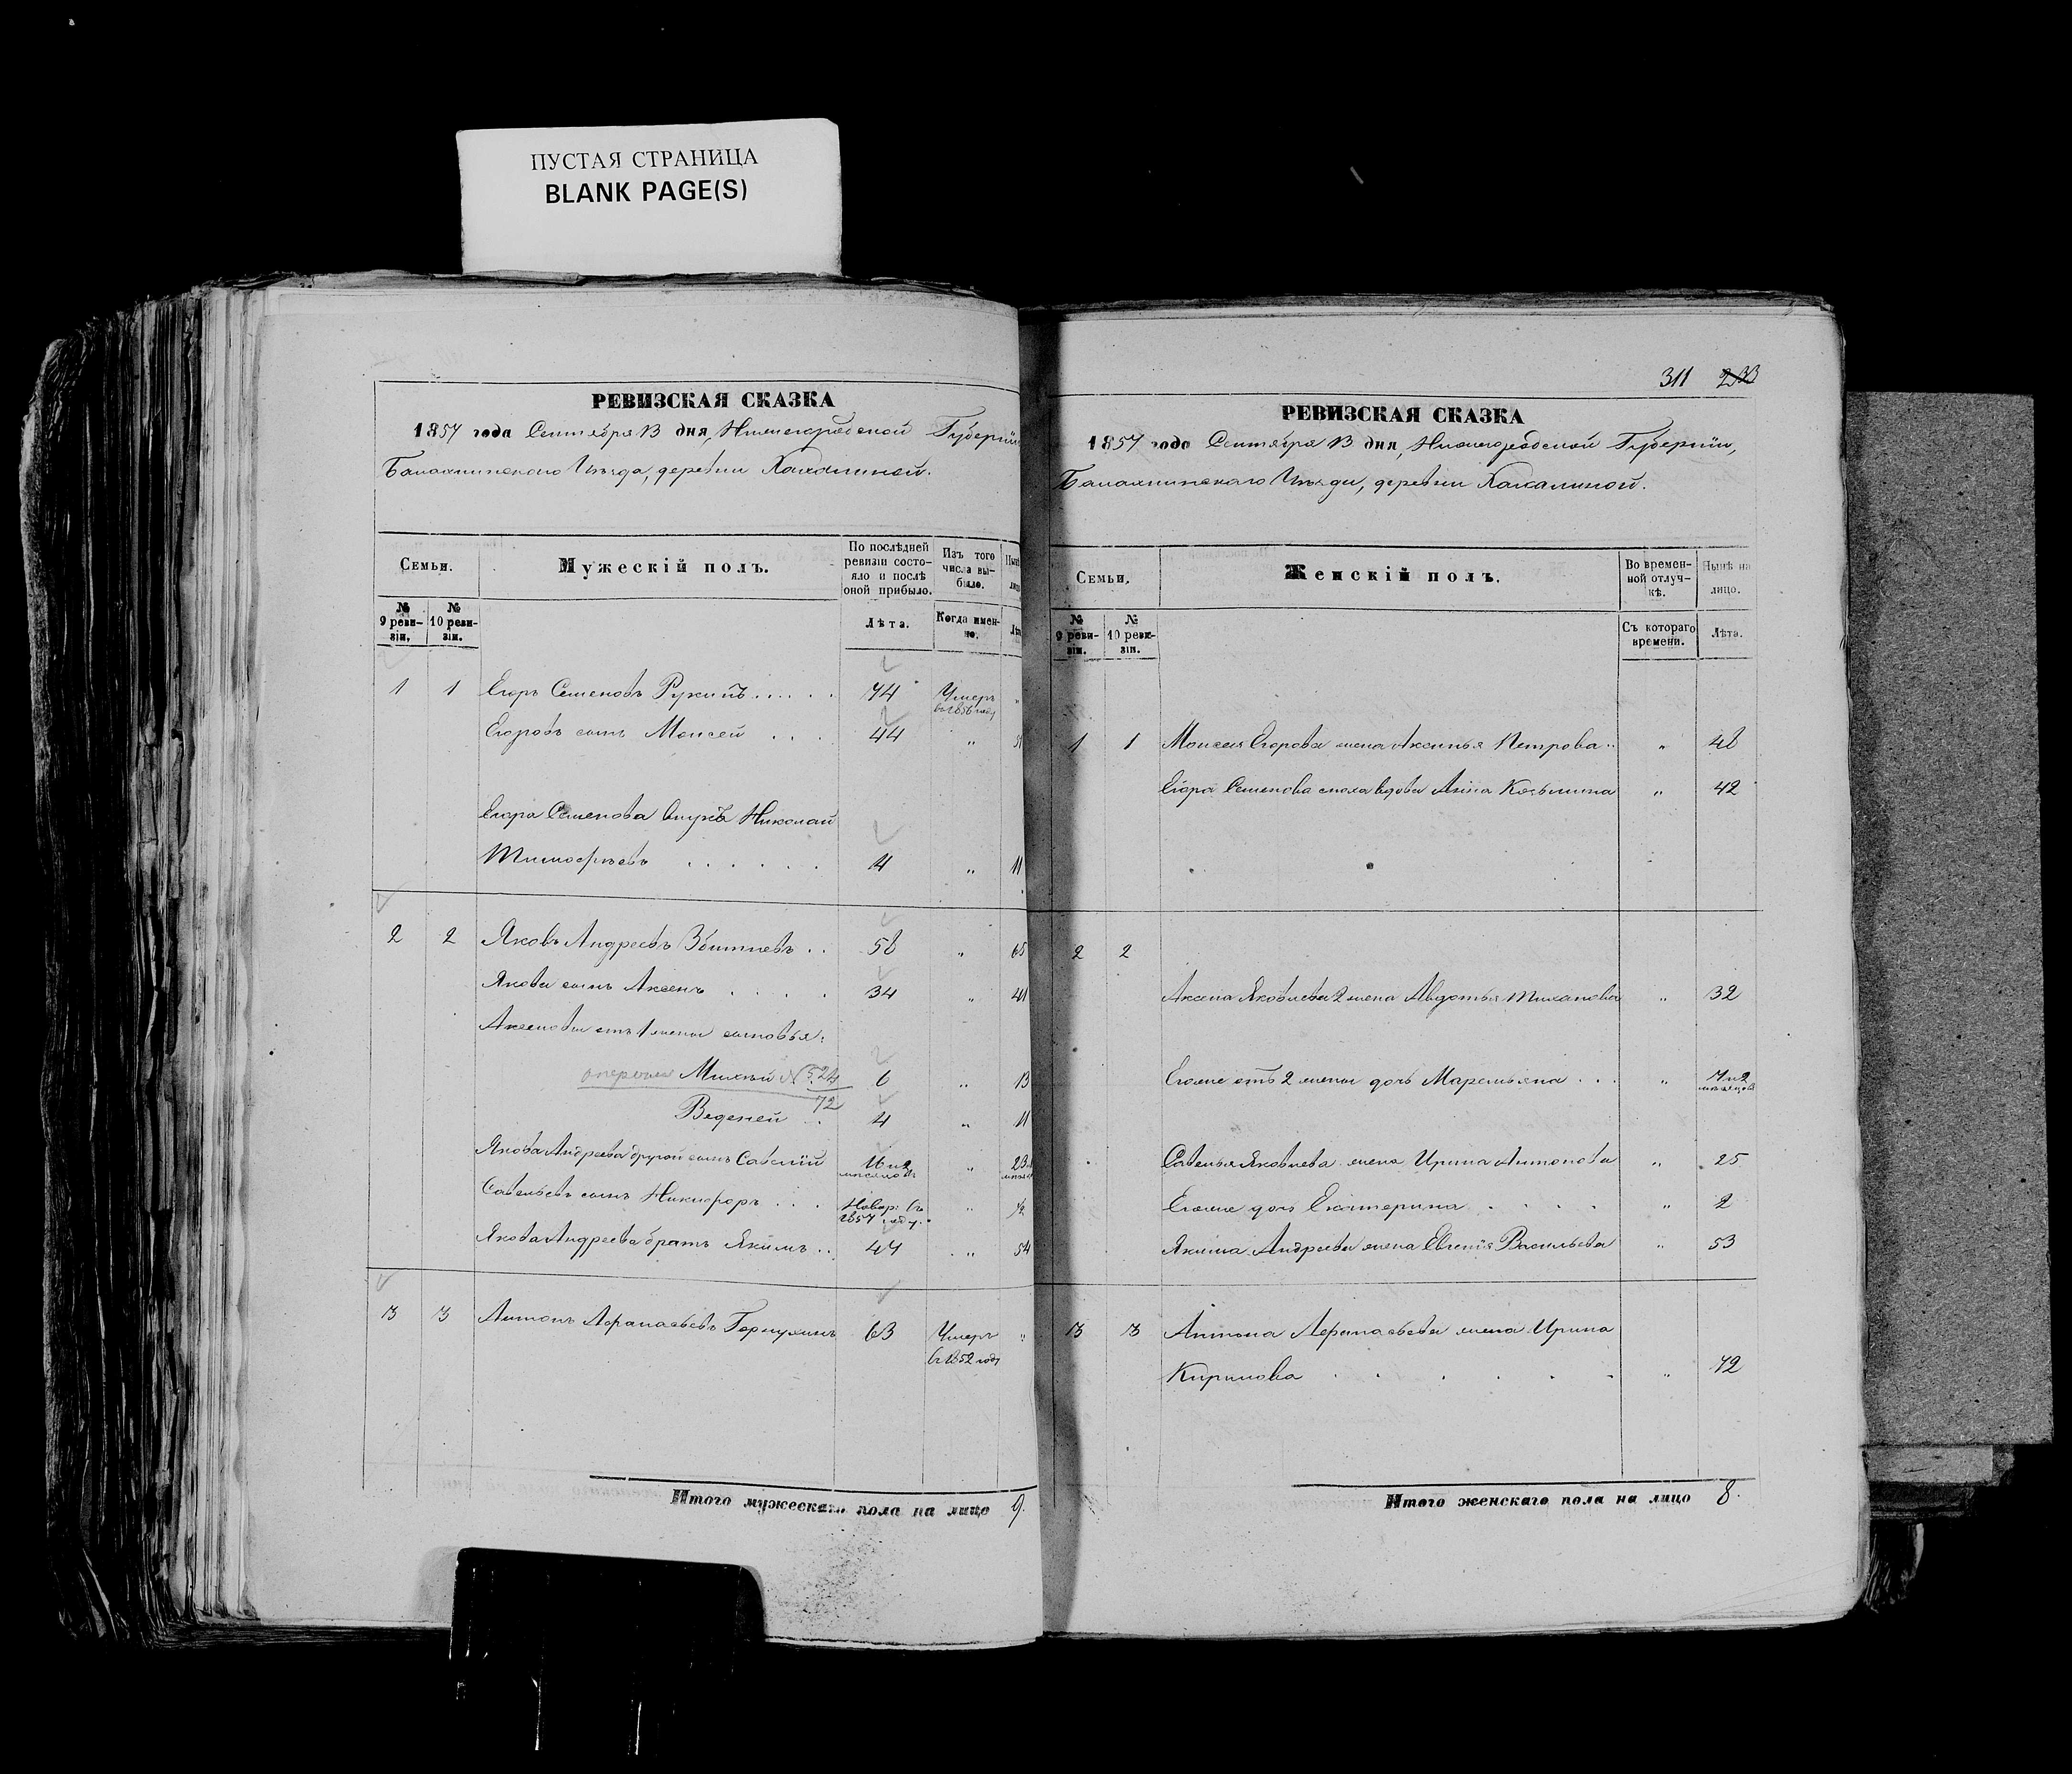 ПУСТАЯ СТРАНИЦА
BLANK PAGE(S)
РЕВИЗСКАЯ СКАЗКА
1857 года Сентября 13 дня, Нижегородской Губерніи
Балахнинскаго Уѣзда, деревни
Семьи.
Мужескій полъ.
По послѣдней ревизіи состояло и послѣ оной прибыло.
Изъ того числа выбыло.
№ 9 ревизіи.
№ 10 ревизіи.
Лѣта.
Когда именно.
1 1 Егоръ Семеновъ 74 Умеръ въ 1856 году
Егоровъ сынъ Моисей 44 „
Егора Семенова внукъ Николай
Тимофѣевъ 4 „ 11
2 2 Яковъ Андреевъ 58 „ 65
Якова сынъ Аксенъ 34 „ 41
Аксенова отъ 1 жены сыновья:
Михѣй № 524 6 „ 13
72
Веденей 4 „ 11
Якова Андреева другой сынъ Савелій 16 и 2 мѣсяцовъ „ 23
Савельевъ сынъ Никифоръ Новор: въ 1857 году „
Якова Андреева братъ Якимъ 47 „ 54
3 3 Антонъ Афанасьевъ 63 Умеръ въ 1852 году „
Итого мужескаго пола на лицо 9.
311 233
РЕВИЗСКАЯ СКАЗКА
1857 года Сентября 13 дня, Нижегородской Губерніи,
Балахнинскаго Уѣзда, деревни
Семьи.
Женскій полъ.
Во временной отлучкѣ.
Нынѣ на лицо.
№ 9 ревизіи.
№ 10 ревизіи.
Съ котораго времени.
Лѣта.
1 1 Моисея Егорова жена Аксинья Петрова „ 48
Егора Семенова сноха вдова Анна Козьмина „ 42
2 2
Аксена Яковлева 2 жена Авдотья „ 32
Егоже отъ 2 жены дочь Маремьяна „ 7 и 2 мѣсяцовъ
Савелья Яковлева жена Ирина Антонова „ 25
Егоже дочь Екатерина „ 2
Якима Андреева жена Евгенія Васильева „ 53
3 3 Антона Афанасьева жена Ирина
Кирилова „ 72
Итого женскаго пола на лицо 8.